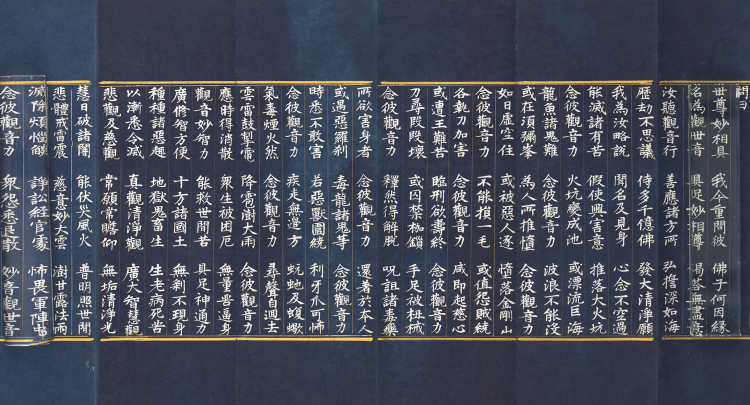 世尊妙相具 我今重問彼 佛子何因緣
名為觀世音 具足妙相尊 偈答無盡意
汝聽觀音行 善應諸方所 弘誓深如海
歷劫不思議 侍多千億佛 發大清淨願
我為汝略說 聞名及見身 心念不空過
能滅諸有苦 假使興害意 推落大火坑
念彼觀音力 火坑變成池 或漂流巨海
龍魚諸鬼難 念彼觀音力 波浪不能沒
或在須彌峯 為人所推墮 念彼觀音力
如日虛空住 或被惡人逐 墮落金剛山
念彼觀音力 不能損一毛 或值怨賊繞
各執刀加害 念彼觀音力 咸即起慈心
或遭王難苦 臨刑欲壽終 念彼觀音力
刀尋段段壞 或囚禁枷鎖 手足被杻械
念彼觀音力 釋然得解脫 呪詛諸毒藥
所欲害身者 念彼觀音力 還著於本人
或遇惡羅刹 毒龍諸鬼等 念彼觀音力
時悉不敢害 若惡獸圍繞 利牙爪可怖
念彼觀音力 疾走無邊方 蚖虵及蝮蠍
氣毒煙火然 念彼觀音力 尋聲自迴去
雲雷鼓掣電 降雹澍大雨 念彼觀音力
應時得消散 衆生被困厄 無量苦逼身
觀音妙智力 能救世間苦 具足神通力
廣修智方便 十方諸國土 無刹不現身
種種諸惡趣 地獄鬼畜生 生老病死苦
以漸悉令滅 真觀清淨觀 廣大智慧觀
悲觀及慈觀 常願常瞻仰 無垢清淨光
慧日破諸闇 能伏災風火 普明照世間
悲體戒雷震 慈意妙大雲 澍甘露法雨
滅除煩惱焰 諍訟經官處 怖畏軍陣中
念彼觀音力 衆怨悉退散 妙音觀世音